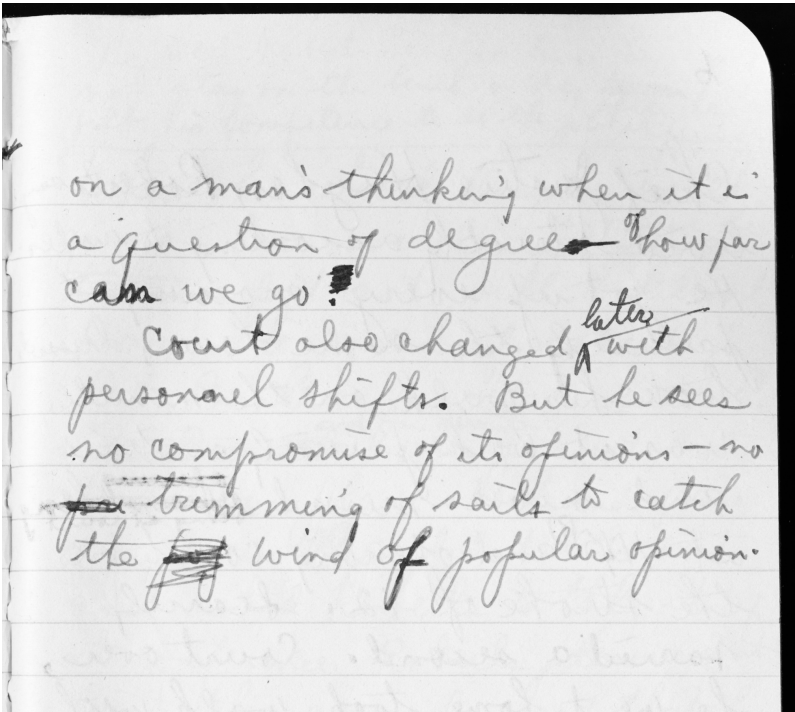 on a man's thinking when it is
a question of degree of how far
can we go.
Court also changed later with
personnel shifts. But he sees
no compromise of its opinions – no
trimming of sails to catch
the wind of popular opinion.